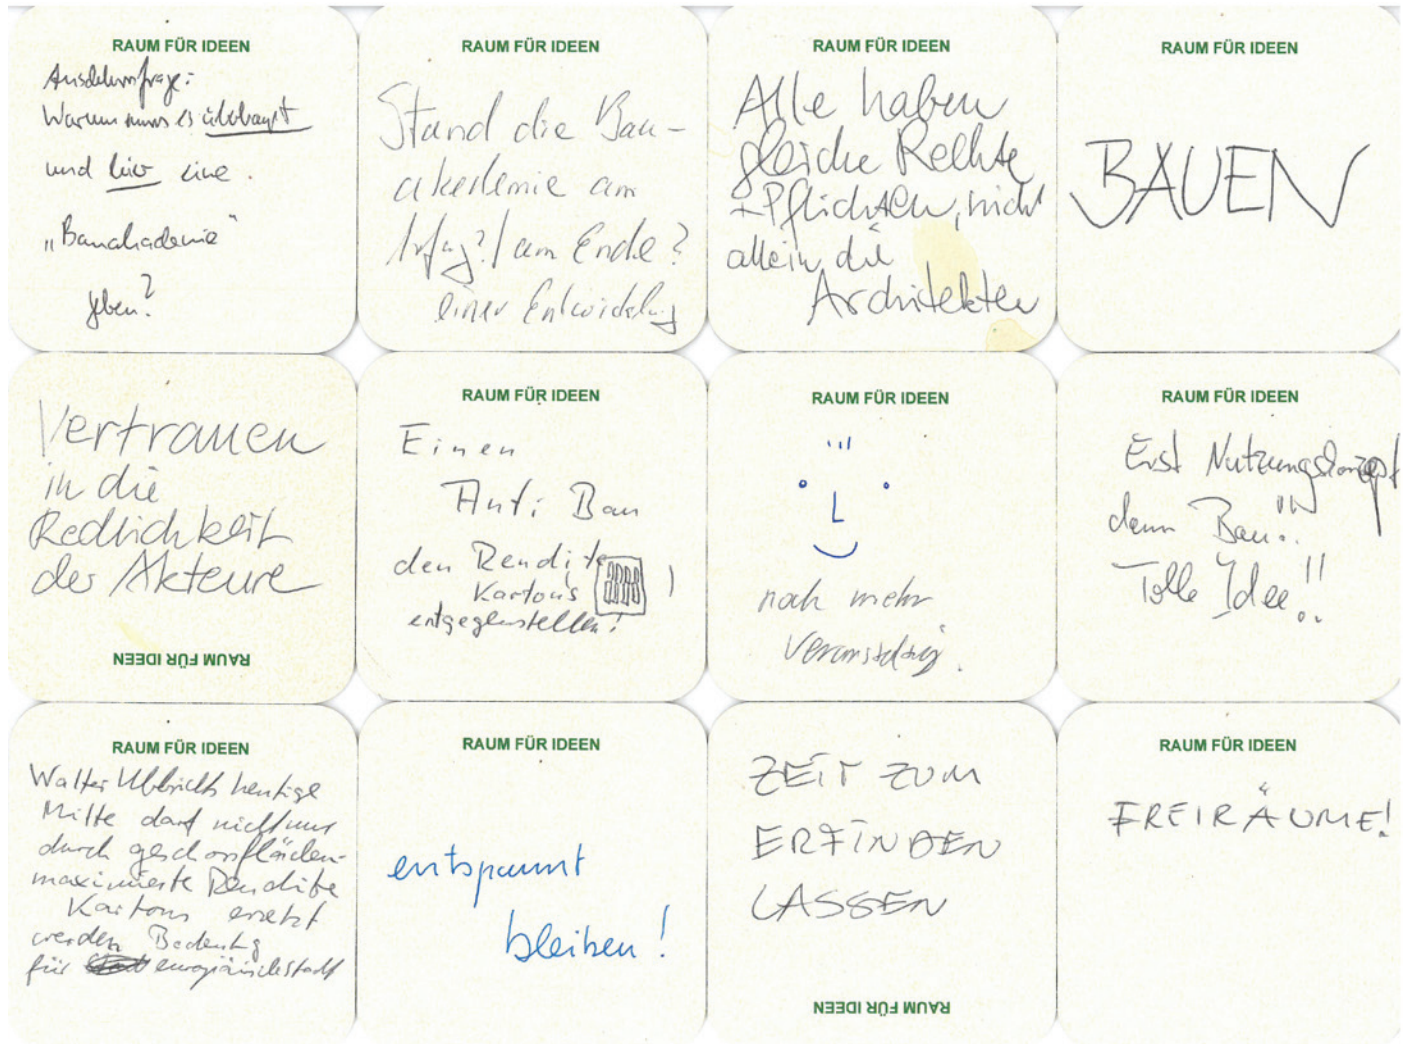 RAUM FÜR IDEEN
Ausdehnfrage:
Warum muss es überhaupt
und hier eine
"Bauakademie"
geben?
RAUM FÜR IDEEN
Stand die Bau-
akademie am
Anfang?/am Ende?
einer Entwicklung
RAUM FÜR IDEEN
Alle haben
gleiche Rechte
+ Pflichten, nicht
allein die
Architekten
RAUM FÜR IDEEN
BAUEN
Vertrauen
in die
Redlichkeit
der Akteure
RAUM FÜR IDEEN
RAUM FÜR IDEEN
Einen
Anti Bau
den Rendite
Kartons
entgegenstellen!
RAUM FÜR IDEEN
noch mehr
Veranstaltung.
RAUM FÜR IDEEN
Erst Nutzungskonzept
dann Bau!!!
Tolle Idee!!
RAUM FÜR IDEEN
Walter Ulbrichts heutige
Mitte darf nicht nur
durch geschossflächen-
maximierte Rendite
Kartons ersetzt
werden Bedeutung
für europäische Stadt
RAUM FÜR IDEEN
entspannt
bleiben!
ZEIT ZUM
ERFINDEN
LASSEN
RAUM FÜR IDEEN
RAUM FÜR IDEEN
FREIRÄUME!